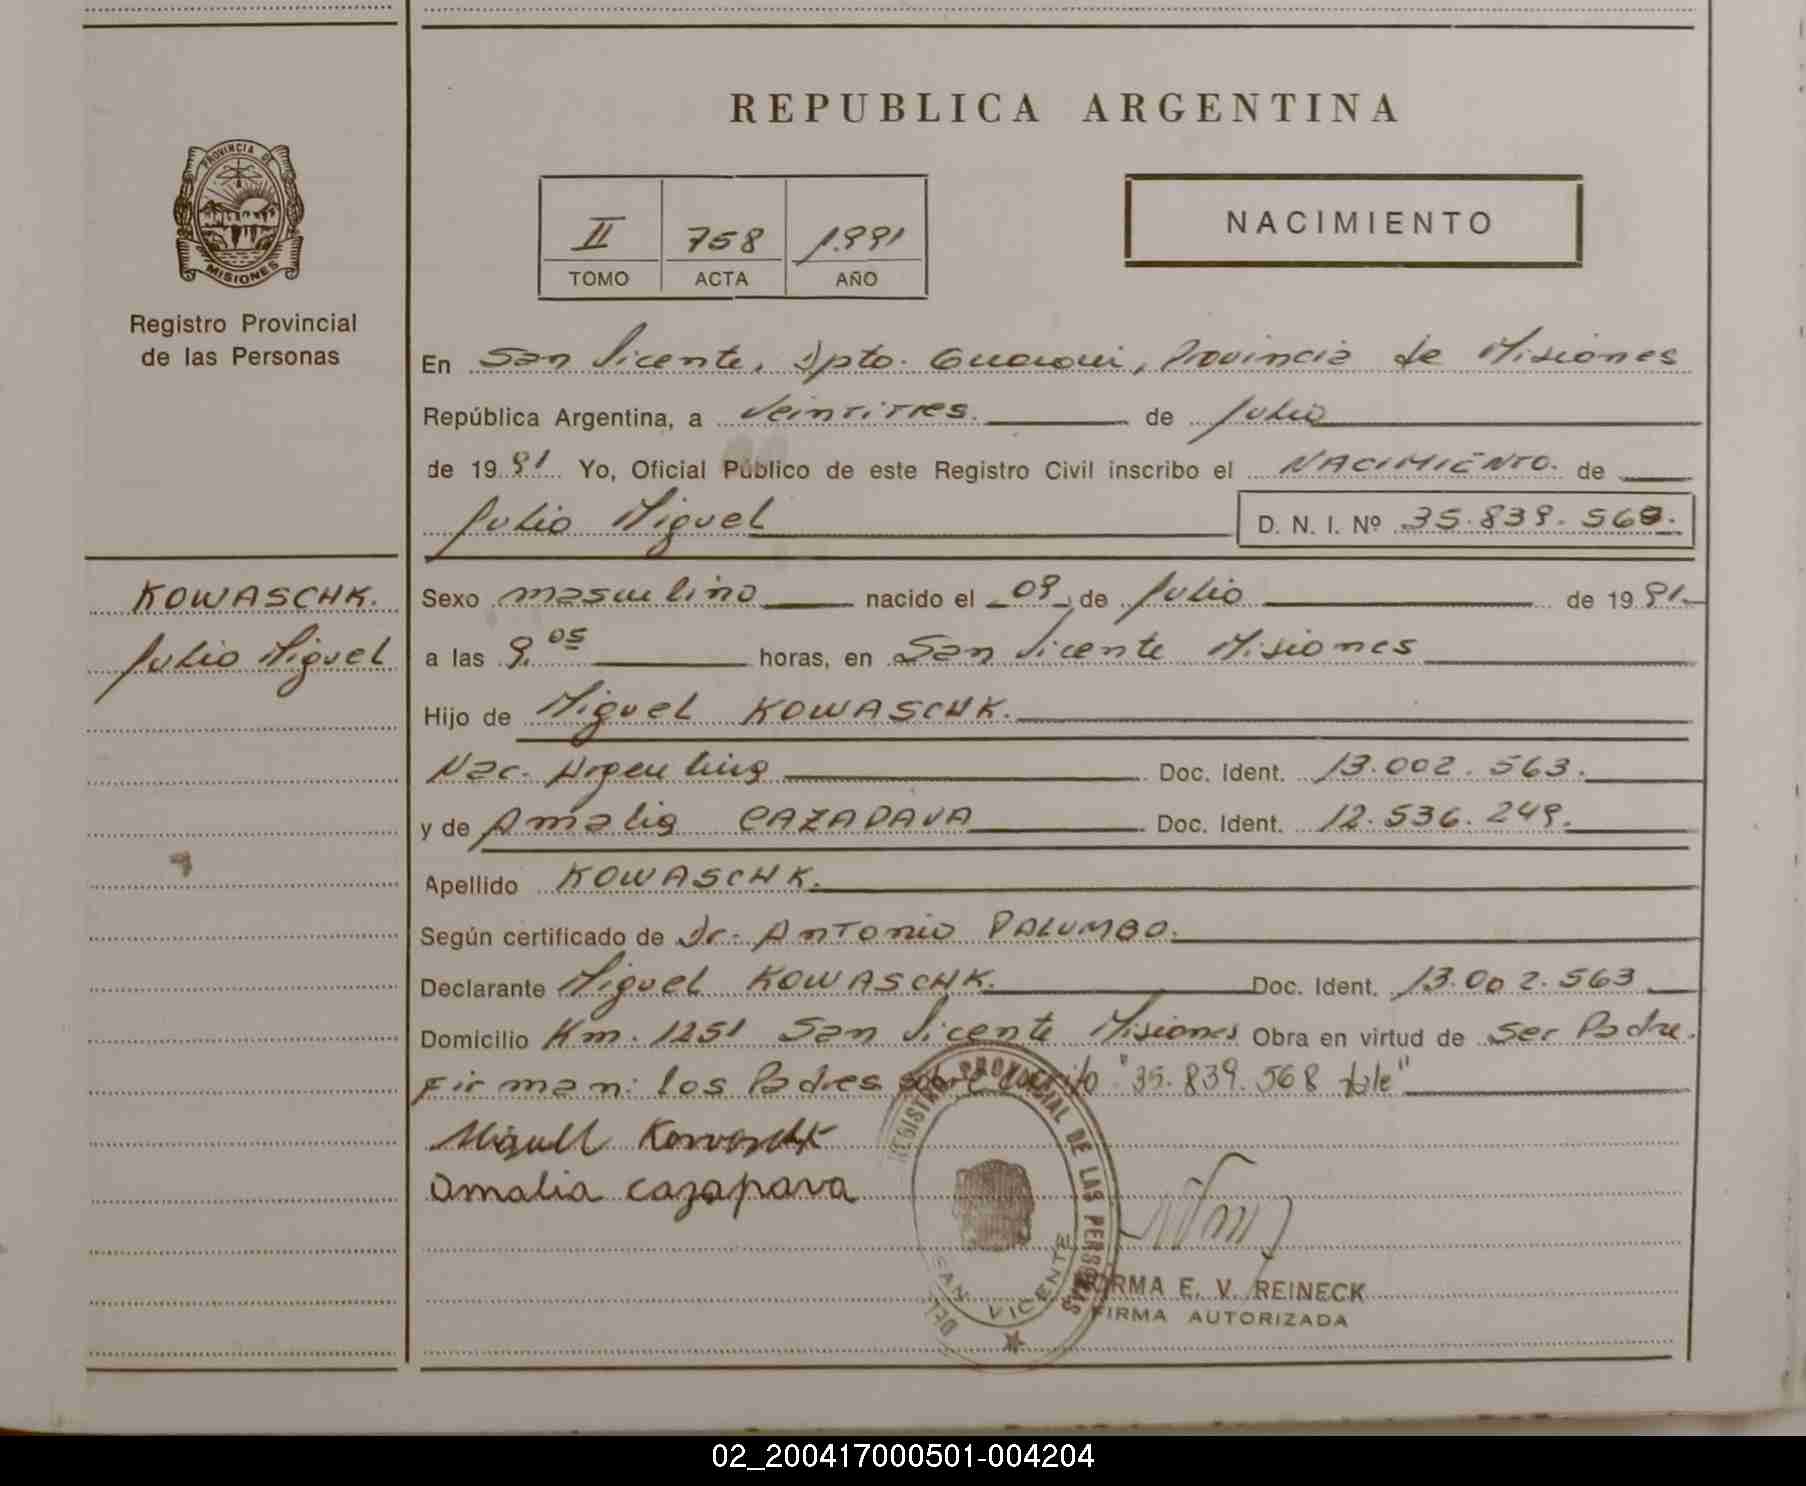 REPUBLICA ARGENTINA
PROVINCIA DE
MISIONES
Registro Provincial
de las Personas
II 758 1.991
TOMO ACTA AÑO
NACIMIENTO
En San Vicente, Dpto. Guarani, Provincia de Misiones
República Argentina, a Veintitres. de Julio
de 1991 Yo, Oficial Público de este Registro Civil inscribo el NACIMIENTO. de
Julio Miguel D. N. I. Nº 35.839.568.
KOWASCHK.
Julio Miguel
Sexo masculino nacido el 09 de Julio de 1991.
a las 9.05 horas, en San Vicente Misiones
Hijo de Miguel KOWASCHK.
Nac. Argentina Doc. Ident. 13.002.563.
y de Amalia CAZAPAVA Doc. Ident. 12.536.249.
Apellido KOWASCHK.
Según certificado de Dr. Antonio PALUMBO.
Declarante Miguel KOWASCHK. Doc. Ident. 13.002.563
Domicilio Km. 1251 San Vicente Misiones Obra en virtud de ser Padre.
Firman: los Padres sobre escrito "35.839.568 vale"
Miguel Kowaschk
Amalia cazapava
REGISTRO PROVINCIAL DE LAS PERSONAS
DEL
SAN VICENTE
NORMA E. V. REINECK
FIRMA AUTORIZADA
02_200417000501-004204